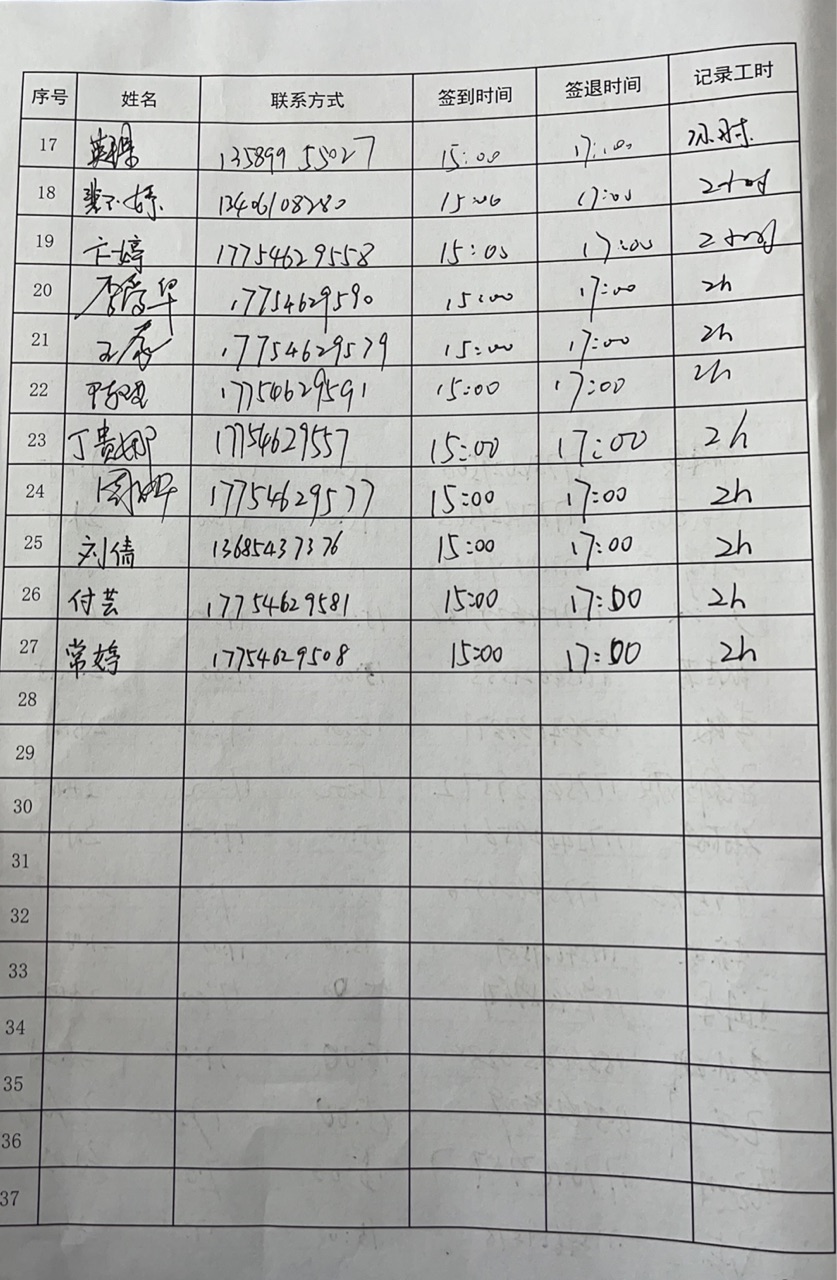 序号 姓名 联系方式 签到时间 签退时间 记录工时
17 13589955027 15:00 17:00 2小时.
18 13406108280 15:00 17:00 2小时
19 卞婷 17754629558 15:00 17:00 2小时
20 17754629590 15:00 17:00 2h
21 17754629579 15:00 17:00 2h
22 17754629591 15:00 17:00 2h
23 丁贵娜 17754629557 15:00 17:00 2h
24 17754629577 15:00 17:00 2h
25 刘倩 13685437376 15:00 17:00 2h
26 付芸 17754629581 15:00 17:00 2h
27 常婷 17754629508 15:00 17:00 2h
28
29
30
31
32
33
34
35
36
37